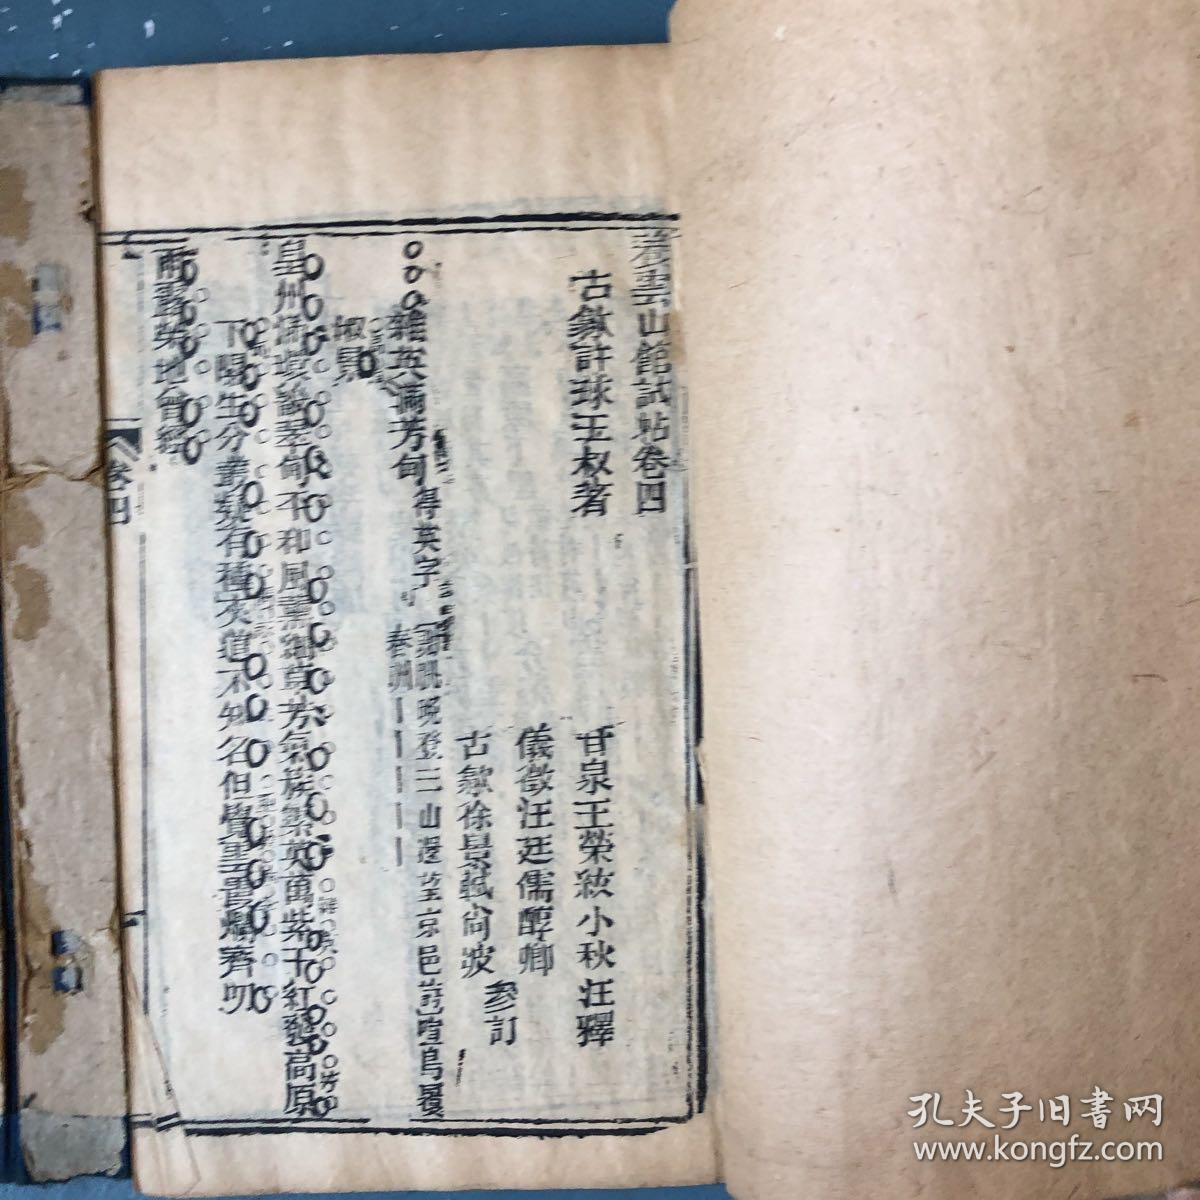 養雲山館試帖卷四
古歙許球玉叔著
甘泉王榮紱小秋汪釋
儀徵汪廷儒醇卿
古歙徐景軾尚波
參訂
雜英滿芳甸
得英字
謝朓晚登三山還望京邑詩喧鳥覆
春洲
皇州 翠甸 和風 芳氣 英萬紫千紅 高原
下隰生分叢疑有種夾道不知名但覺 霞爛齊叨
雨露榮地曾經
卷四
孔夫子旧書网
www.kongfz.com